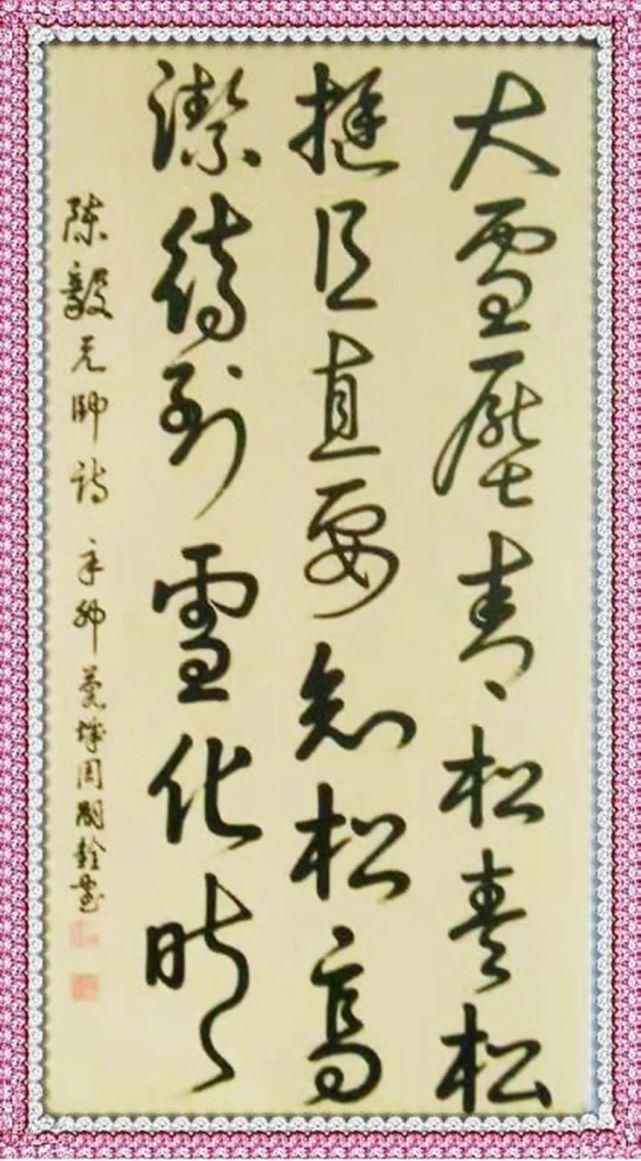 大雪壓青松青松
挺且直要知松高
潔待到雪化時
陳毅元帥詩 辛卯 周 書